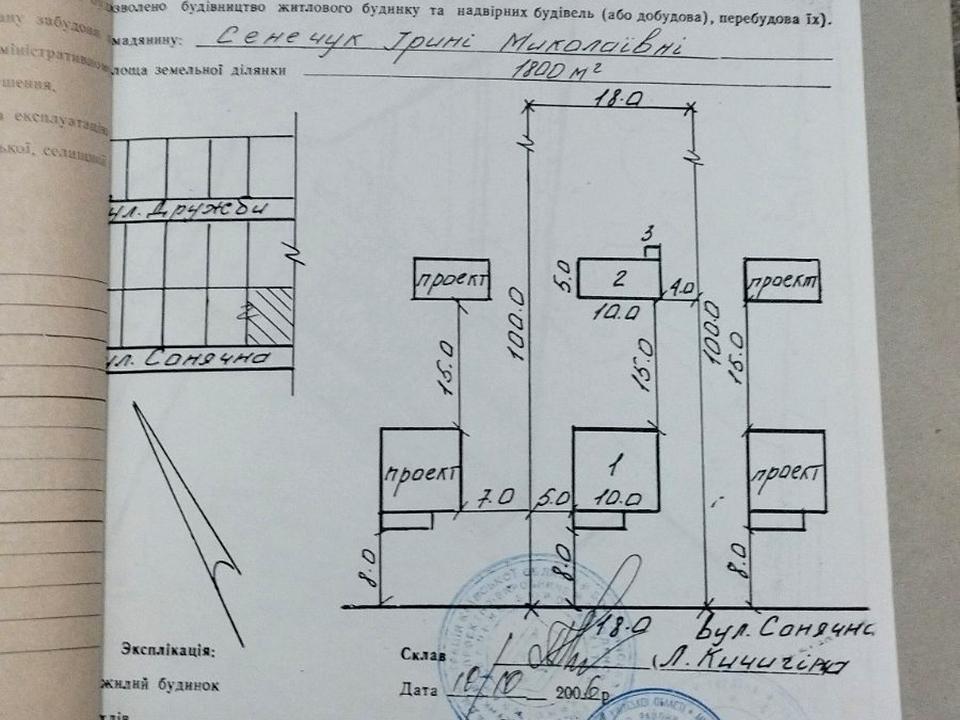 зволено будівництво житлового будинку та надвірних будівель (або добудова), перебудова їх).
ану забудови
мадянину: Сенечук Ірині Миколаївні
міністративно
площа земельної ділянки 1800 м²
шення,
а експлуатацію
ької, селищної
18.0
ул. Дружби
3
проект
5.0
2
4.0
проект
10.0
100.0
100.0
15.0
15.0
15.0
ул. Сонячна
проект
1
проект
7.0
5.0
10.0
8.0
8.0
8.0
18.0
Вул. Сонячна
Експлікація:
Склав
Дата 10/10 2006 р
жилий будинок
хлів